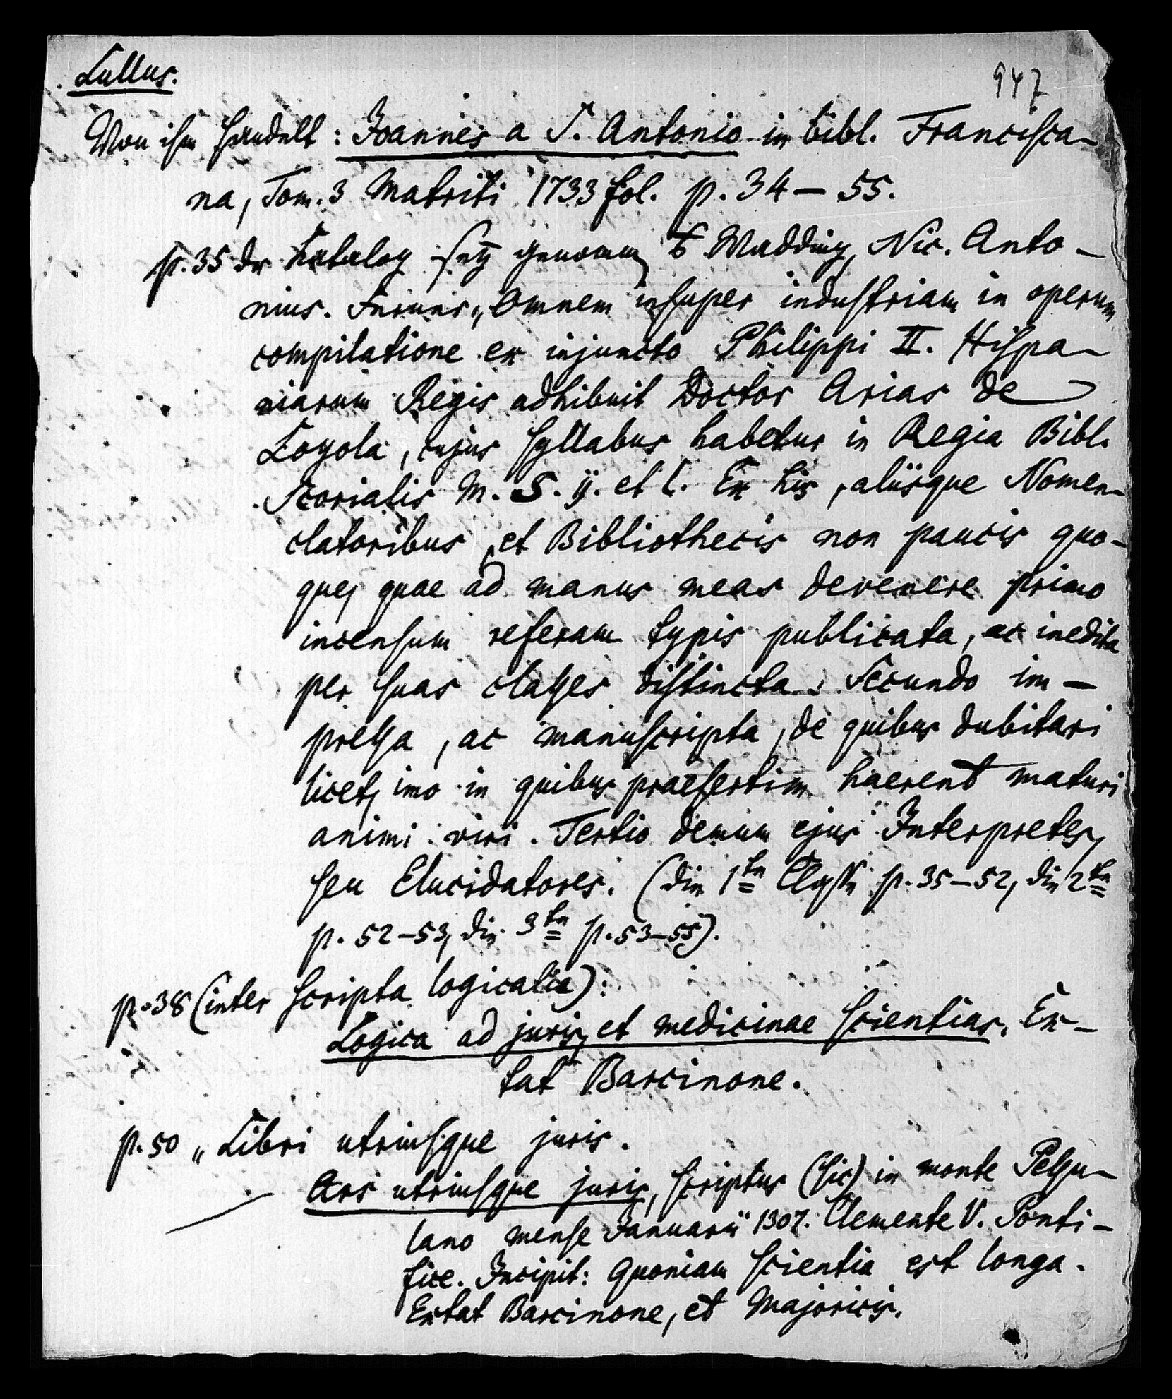 Lullus.
947
Von ihm handelt: Joannes a S. Antonio in bibl. Francisca-
na, Tom. 3 Matriti 1733 fol. p. 34 – 55.
p. 35 der Catalog genommen Wadding, Nic. Anto-
nius. „Omnem insuper industriam in operum
compilatione ex injuncto Philippi II. Hispa-
niarum Regis adhibuit Doctor Arias de
Loyola, cujus syllabus habetur in Regia Bibl.
Scorialis M. S. ij. et l. Ex his, aliisque Nomen-
clatoribus, et Bibliothecis non paucis quo-
que, quae ad manus meas devenere primo
incensum referam typis publicata, ac inedita
per suas classes distincta. Secundo im-
pressa, ac manuscripta, de quibus dubitari
licet, imo in quibus praesertim haerent maturi
animi viri. Tertio demum ejus Interpretes,
seu Elucidatores. (die 1te Classe p. 35–52, die 2te
p. 52–53, die 3te p. 53–55).
p. 38 (inter scripta logicalia):
Logica ad juris, et medicinae scientias. Ex-
tat Barcinone.
p. 50 „Libri utriusque juris.
Ars utriusque juris, scriptus (sic) in monte Pessu-
lano mense Januarii 1307. Clemente V. Ponti-
fice. Incipit: Quoniam scientia est longa.
Extat Barcinone, et Majoricis.